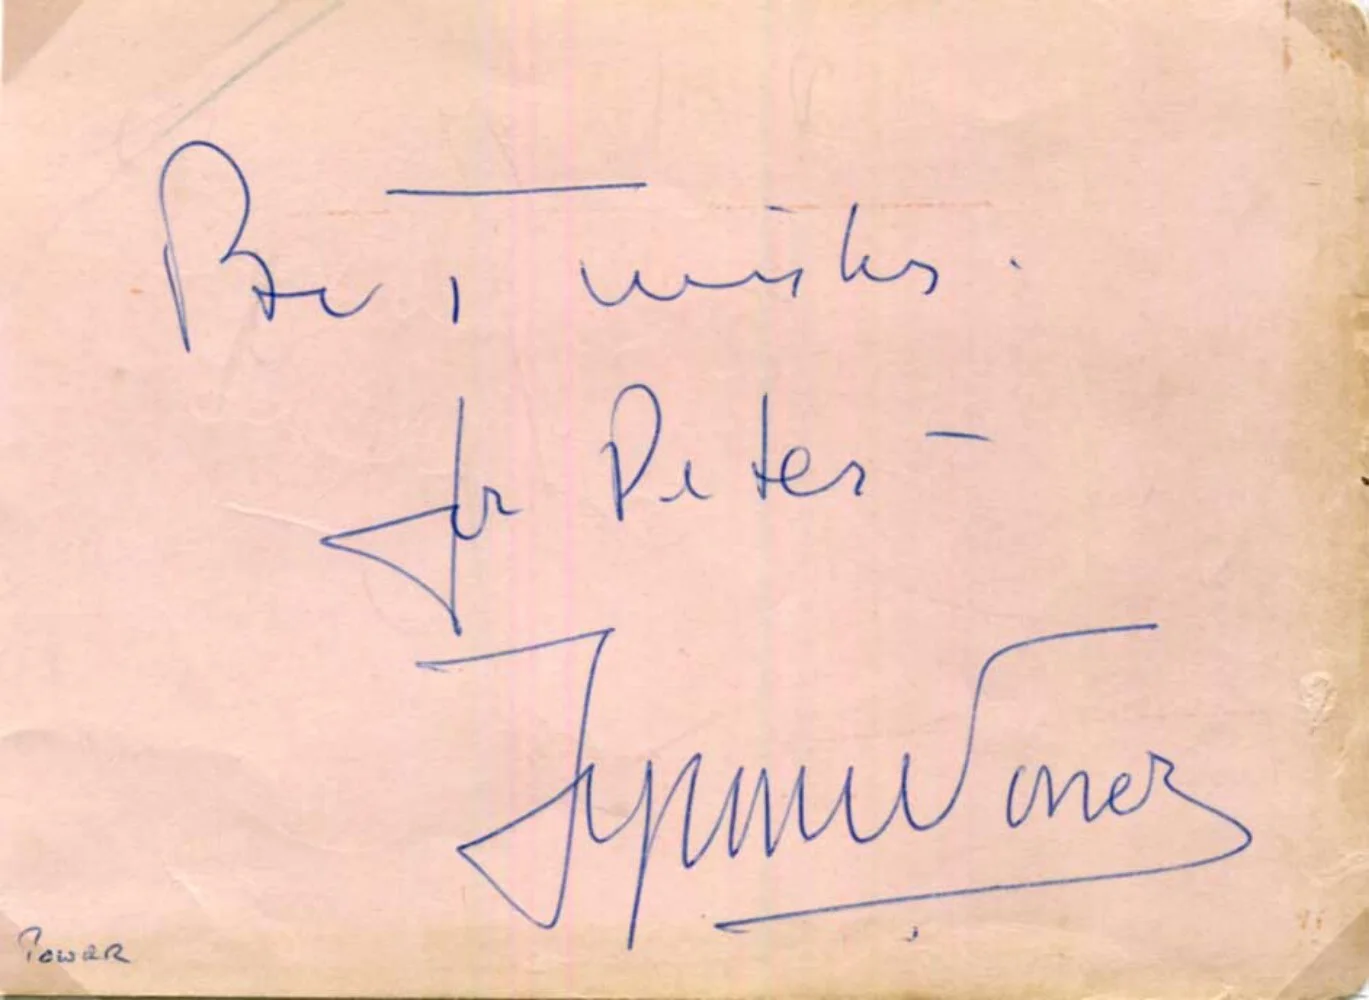 Best wishes.
for Peter –
Tyrone Power
Power